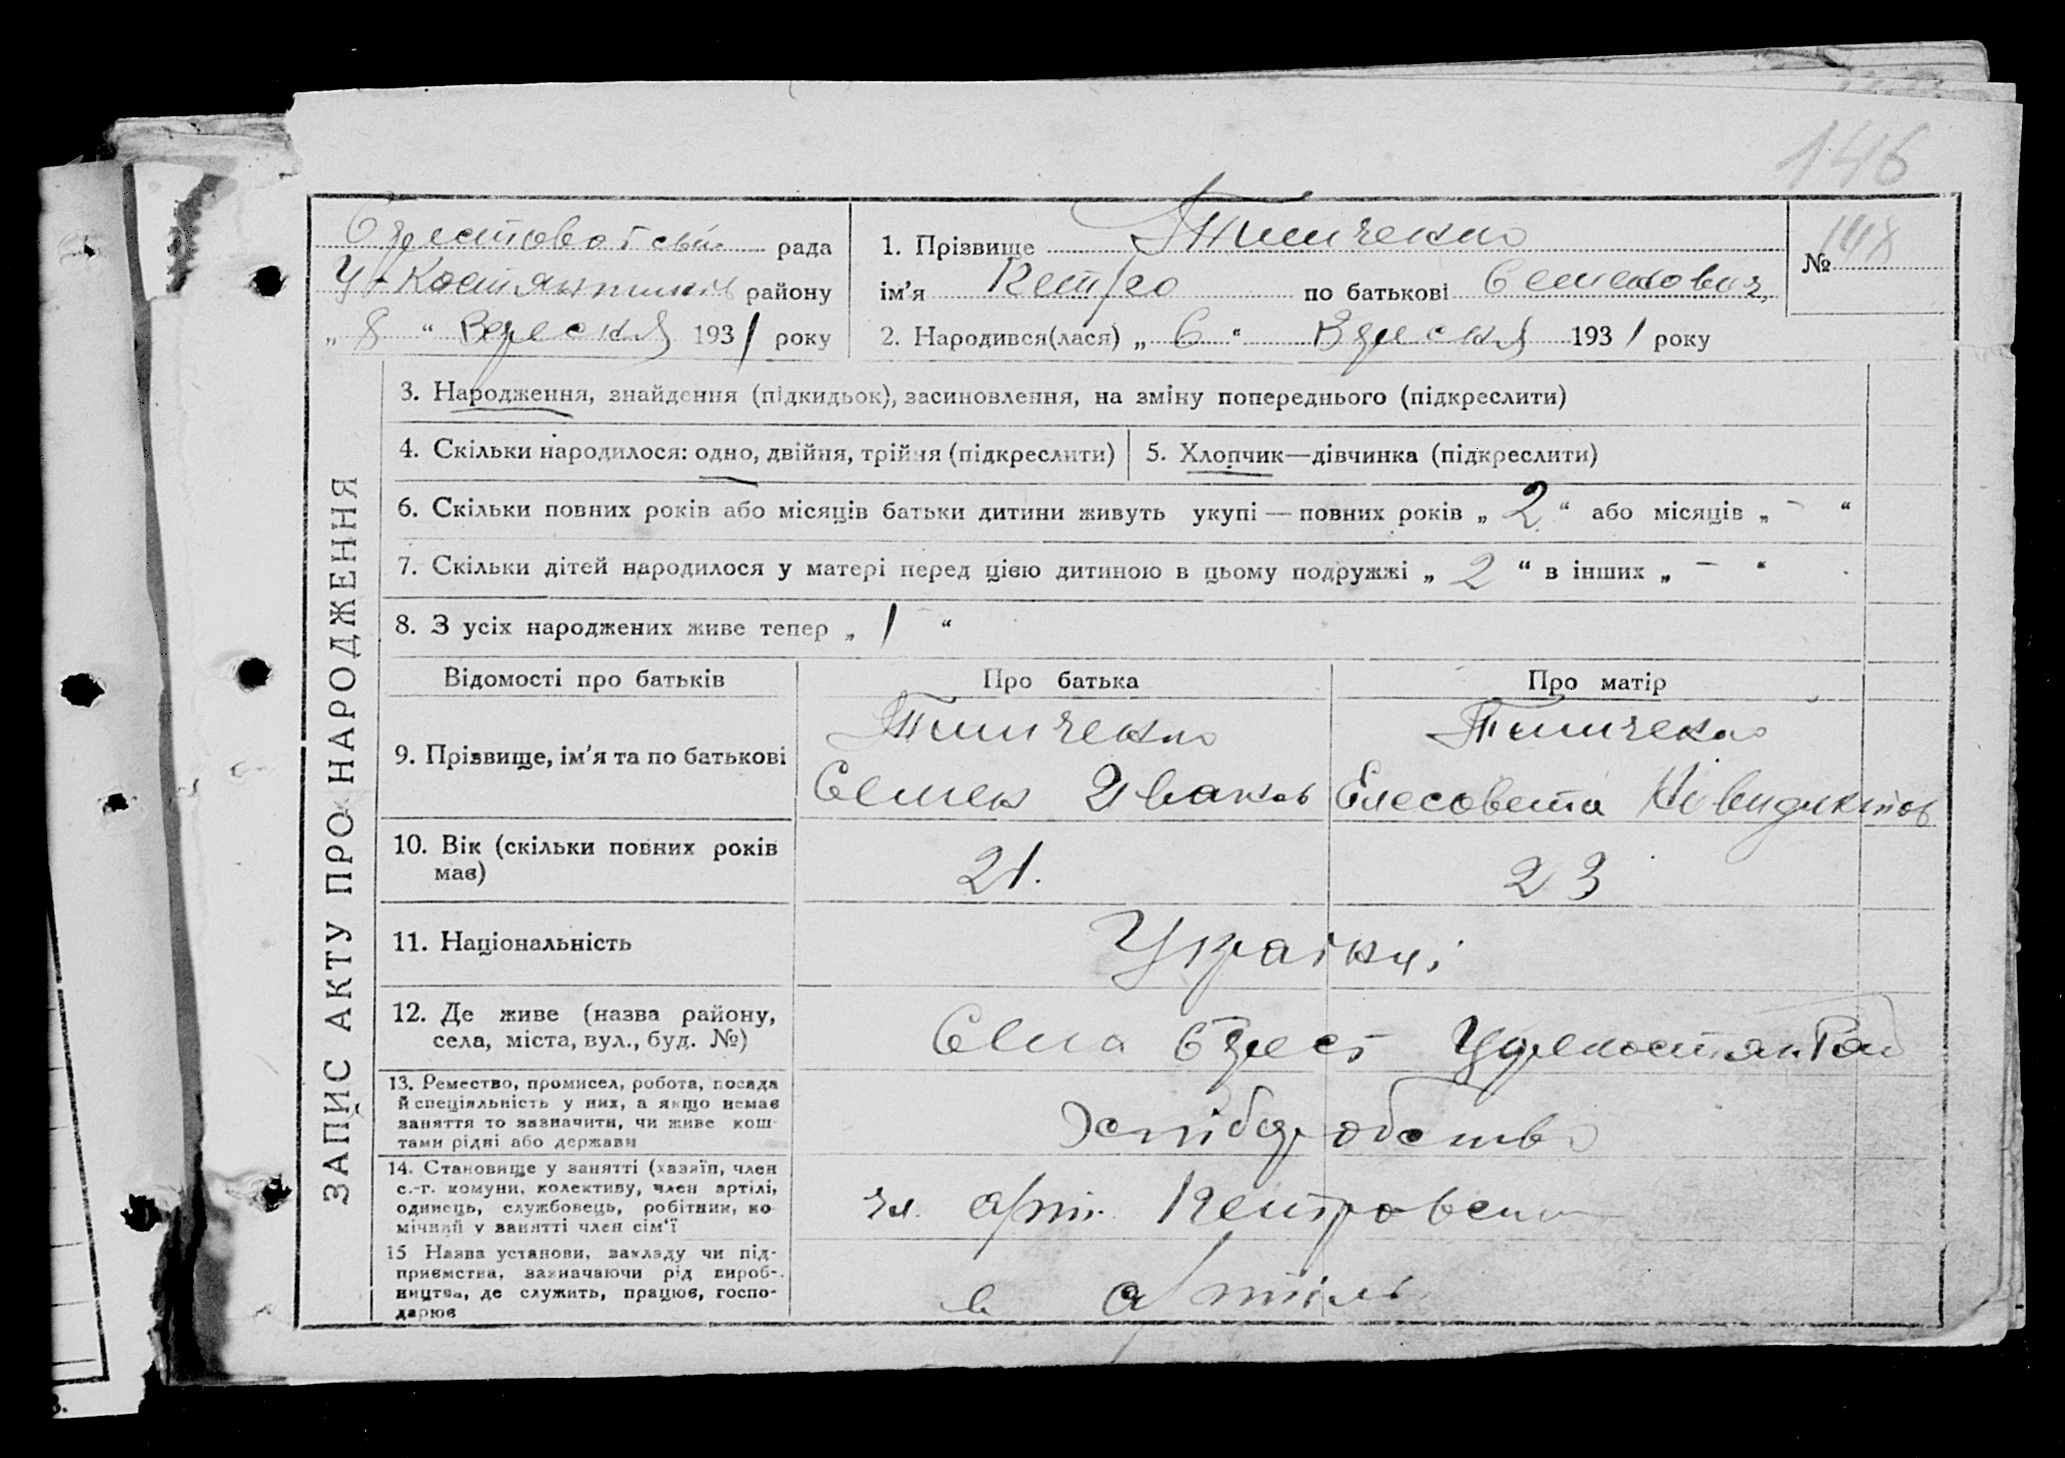 146
рада
района
„ 8 “ Вересня 1931 року
1. Прізвище Тимченко
ім’я Петро по батькові Семенович
№ 148
2. Народився(лася) „ 6 “ Вересня 1931 року
ЗАПИС АКТУ ПРО НАРОДЖЕННЯ
3. Народження, знайдення (підкидьок), засиновлення, на зміну попереднього (підкреслити)
4. Скільки народилося: одно, двійня, трійня (підкреслити)
5. Хлопчик—дівчинка (підкреслити)
6. Скільки повних років або місяців батьки дитини живуть укупі — повних років „ 2 “ або місяців „ - “
7. Скільки дітей народилося у матері перед цією дитиною в цьому подружжі „ 2 “ в інших „ - “
8. З усіх народжених живе тепер „ 1 “
Відомості про батьків
Про батька
Про матір
9. Прізвище, ім’я та по батькові
Тимченко
Семен Иванов
Тимченко
Елесовета
10. Вік (скільки повних років
має)
21.
23
11. Національність
Українці
12. Де живе (назва району,
села, міста, вул., буд. №)
Села
13. Ремество, промисел, робота, посада
й спеціяльність у них, а якщо немає
заняття то зазначити, чи живе кош-
тами рідні або держави
Хліборобство
14. Становище у занятті (хазяїн, член
с.-г. комуни, колективу, член артілі,
одинець, службовець, робітник, по-
мічний у занятті член сім’ї
чл. арт. Петровско
15 Назва установи, закладу чи під-
приємства, зазначаючи рід вироб-
ництва, де служить, працює, госпо-
дарює
в Артіль